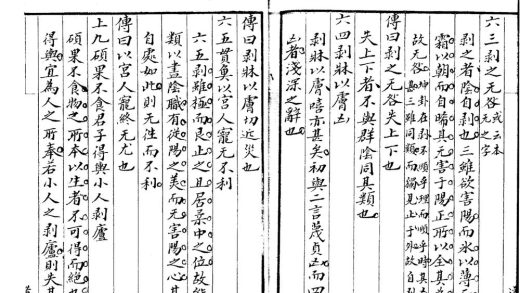 六三剥之无咎 或云本无之字
剥之者陰自剥也三雖欲害陽而
霜以朝而自晴其无害于陽正所以全其
故无咎
失上下者不與群陰同其類也
傳曰剥之无咎失上下也
六四剥牀以膚凶
剥牀以膚嘻亦甚矣初與二言蔑貞凶而四
凶者淺深之辭也
傳曰剥牀以膚切近災也
六五貫魚以宮人寵无不利
六五剥雖極而艮止之且居柔中之位故能
類以盡陰職有從陽之美而无害陽之心其
自處如此則无往而不利
傳曰以宮人寵終无尤也
上九碩果不食君子得輿小人剥廬
碩果不食物之所本以生者不可得而絶也
得輿宜為人之所奉若小人之剥廬則失其